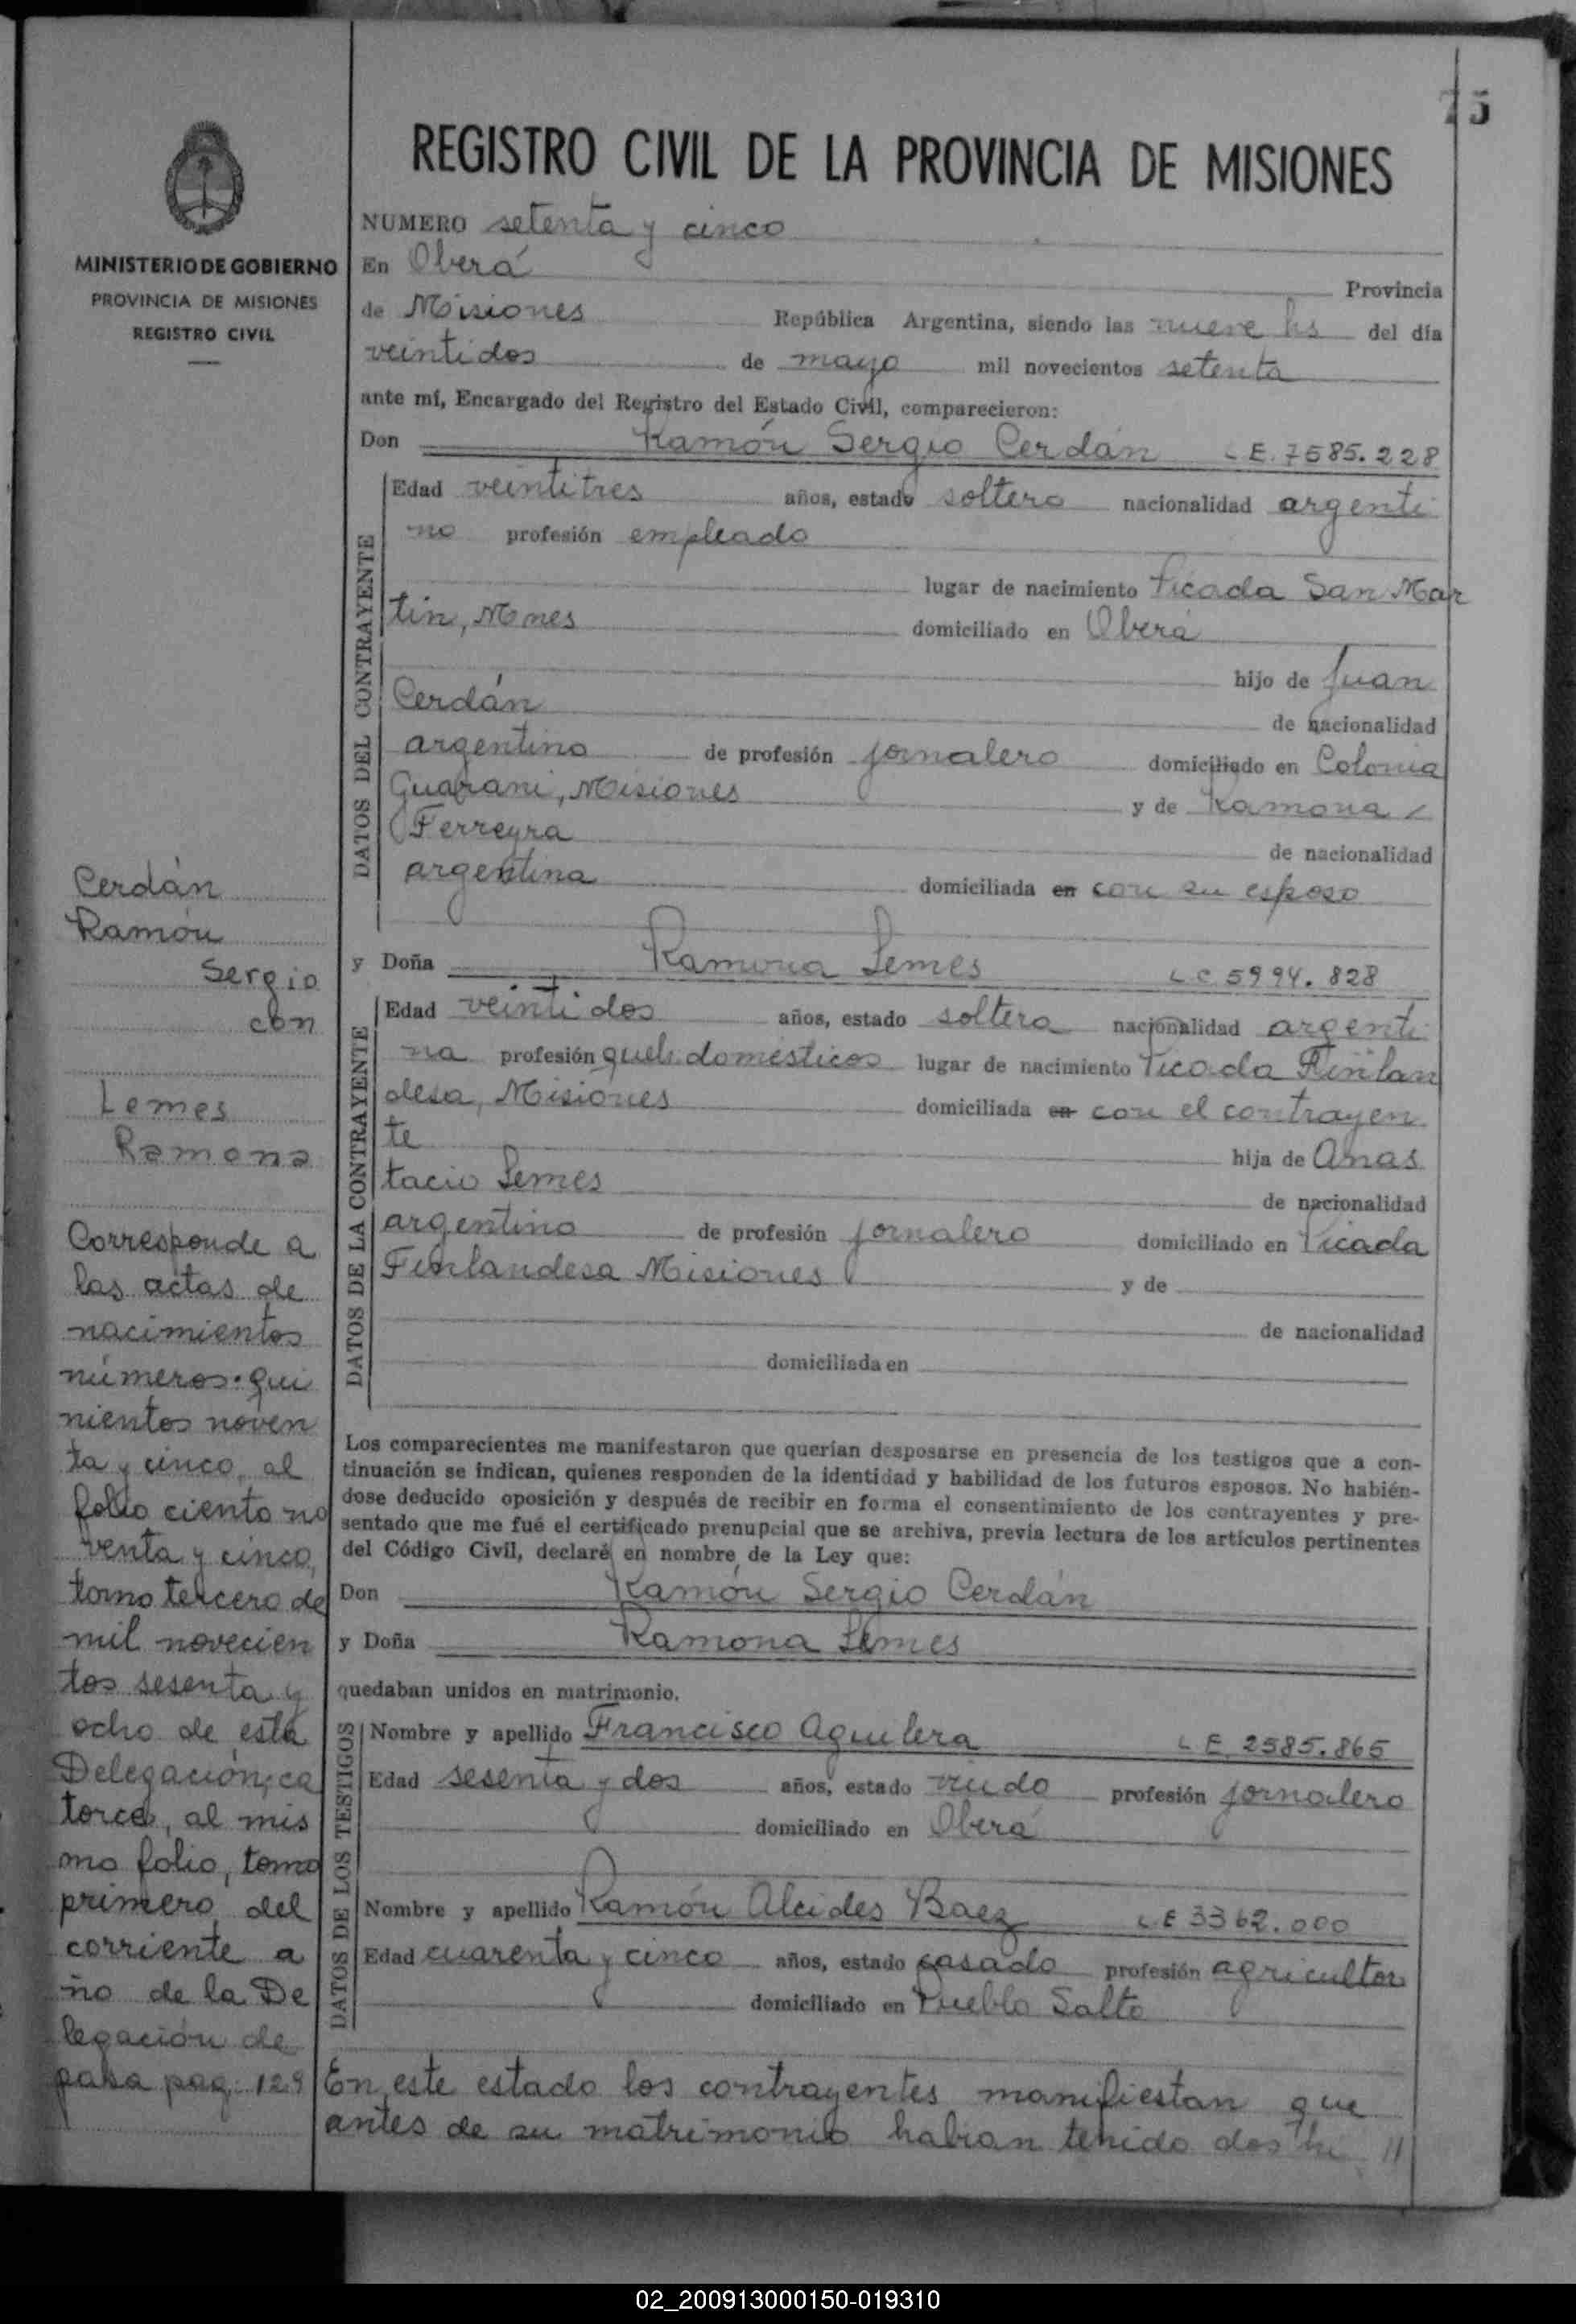 75
REGISTRO CIVIL DE LA PROVINCIA DE MISIONES
MINISTERIO DE GOBIERNO
PROVINCIA DE MISIONES
REGISTRO CIVIL
NUMERO setenta y cinco
En Oberá Provincia
de Misiones República Argentina, siendo las nueve hs del día
veintidos de mayo mil novecientos setenta
ante mí, Encargado del Registro del Estado Civil, comparecieron:
Don Ramón Sergio Cerdán L E. 7585.228
DATOS DEL CONTRAYENTE
Edad veintitres años, estado soltero nacionalidad argenti
no profesión empleado
lugar de nacimiento Picada San Mar
tin, Mnes domiciliado en Oberá
hijo de Juan
Cerdán de nacionalidad
argentino de profesión jornalero domiciliado en Colonia
Guarani, Misiones y de Ramona
Ferreyra de nacionalidad
argentina domiciliada en con su esposo
y Doña Ramona Lemes L C 5994.828
DATOS DE LA CONTRAYENTE
Edad veintidos años, estado soltera nacionalidad argenti
na profesión queh. domésticos lugar de nacimiento Picada Finlan
desa, Misiones domiciliada en con el contrayen
te hija de Anas
tacio Lemes de nacionalidad
argentino de profesión jornalero domiciliado en Picada
Finlandesa Misiones y de
de nacionalidad
domiciliada en
Los comparecientes me manifestaron que querían desposarse en presencia de los testigos que a con-
tinuación se indican, quienes responden de la identidad y habilidad de los futuros esposos. No habién-
dose deducido oposición y después de recibir en forma el consentimiento de los contrayentes y pre-
sentado que me fué el certificado prenupcial que se archiva, previa lectura de los artículos pertinentes
del Código Civil, declaré en nombre de la Ley que:
Don Ramón Sergio Cerdán
y Doña Ramona Lemes
quedaban unidos en matrimonio.
DATOS DE LOS TESTIGOS
Nombre y apellido Francisco Aguilera L E 2585.865
Edad sesenta y dos años, estado viudo profesión jornalero
domiciliado en Oberá
Nombre y apellido Ramón Alcides Baez L E 3362.000
Edad cuarenta y cinco años, estado casado profesión agricultor
domiciliado en Pueblo Salto
En este estado los contrayentes manifiestan que
antes de su matrimonio habian tenido dos hi //
Cerdán
Ramón
Sergio
con
Lemes
Ramona
Corresponde a
las actas de
nacimientos
números: qui
nientos noven
ta y cinco, al
folio ciento no
venta y cinco,
tomo tercero de
mil novecien
tos sesenta y
ocho de esta
Delegación; ca
torce, al mis
mo folio, tomo
primero del
corriente a
ño de la De
legación de
pasa pag: 129
02_200913000150-019310